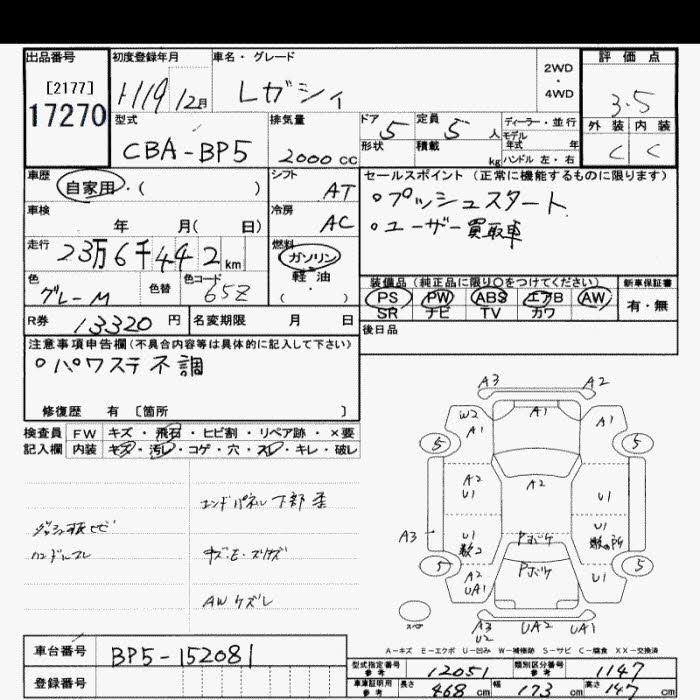 出品番号 初度登録年月 車名・グレード 2WD・4WD 評価点
[2177]
17270 H19 12月 レガシィ 3.5
型式 排気量 ドア 5 定員 5 人 ディーラー・並行 外装 内装
CBA-BP5 2000 cc 形状 積載 kg モデル年式 年 C C
ハンドル 左・右
車歴 シフト セールスポイント (正常に機能するものに限ります)
自家用・( ) AT ○プッシュスタート
車検 冷房 ○ユーザー買取車
年 月( 日) AC
走行 23万6千442km 燃料
ガソリン
軽・油
・( )
装備品 (純正品に限り○をつけてください) 新車保証書
色 色替 色コード PS PW ABS エアB AW 有・無
グレーM 65Z SR ナビ TV カワ
R券 13320 円 名変期限 月 日 後日品
注意事項申告欄(不具合内容等は具体的に記入して下さい)
○パワステ不調
修復歴 有 〔箇所 〕
検査員 FW キズ・飛石・ヒビ割・リペア跡・×要
記入欄 内装 キズ・汚レ・コゲ・穴・スレ・キレ・破レ
エンドパネル下部歪
ハンドルスレ
AWケズレ
A3 A2
W2 A1 A1 A1
5 5
A2 U1 A2 U1
A3 U1 Pボケ U1
5 A2 UA1 Pボケ U1 5
スペア A3 U2 UA2 UA1
A-キズ E-エクボ U-凹み W-補修跡 S-サビ C-腐食 XX-交換済
車台番号 BP5-152081
登録番号
型式指定番号 参考 12051 類別区分番号 参考 1147
車庫証明用 参考 長さ 468 cm 幅 173 cm 高さ 147 cm